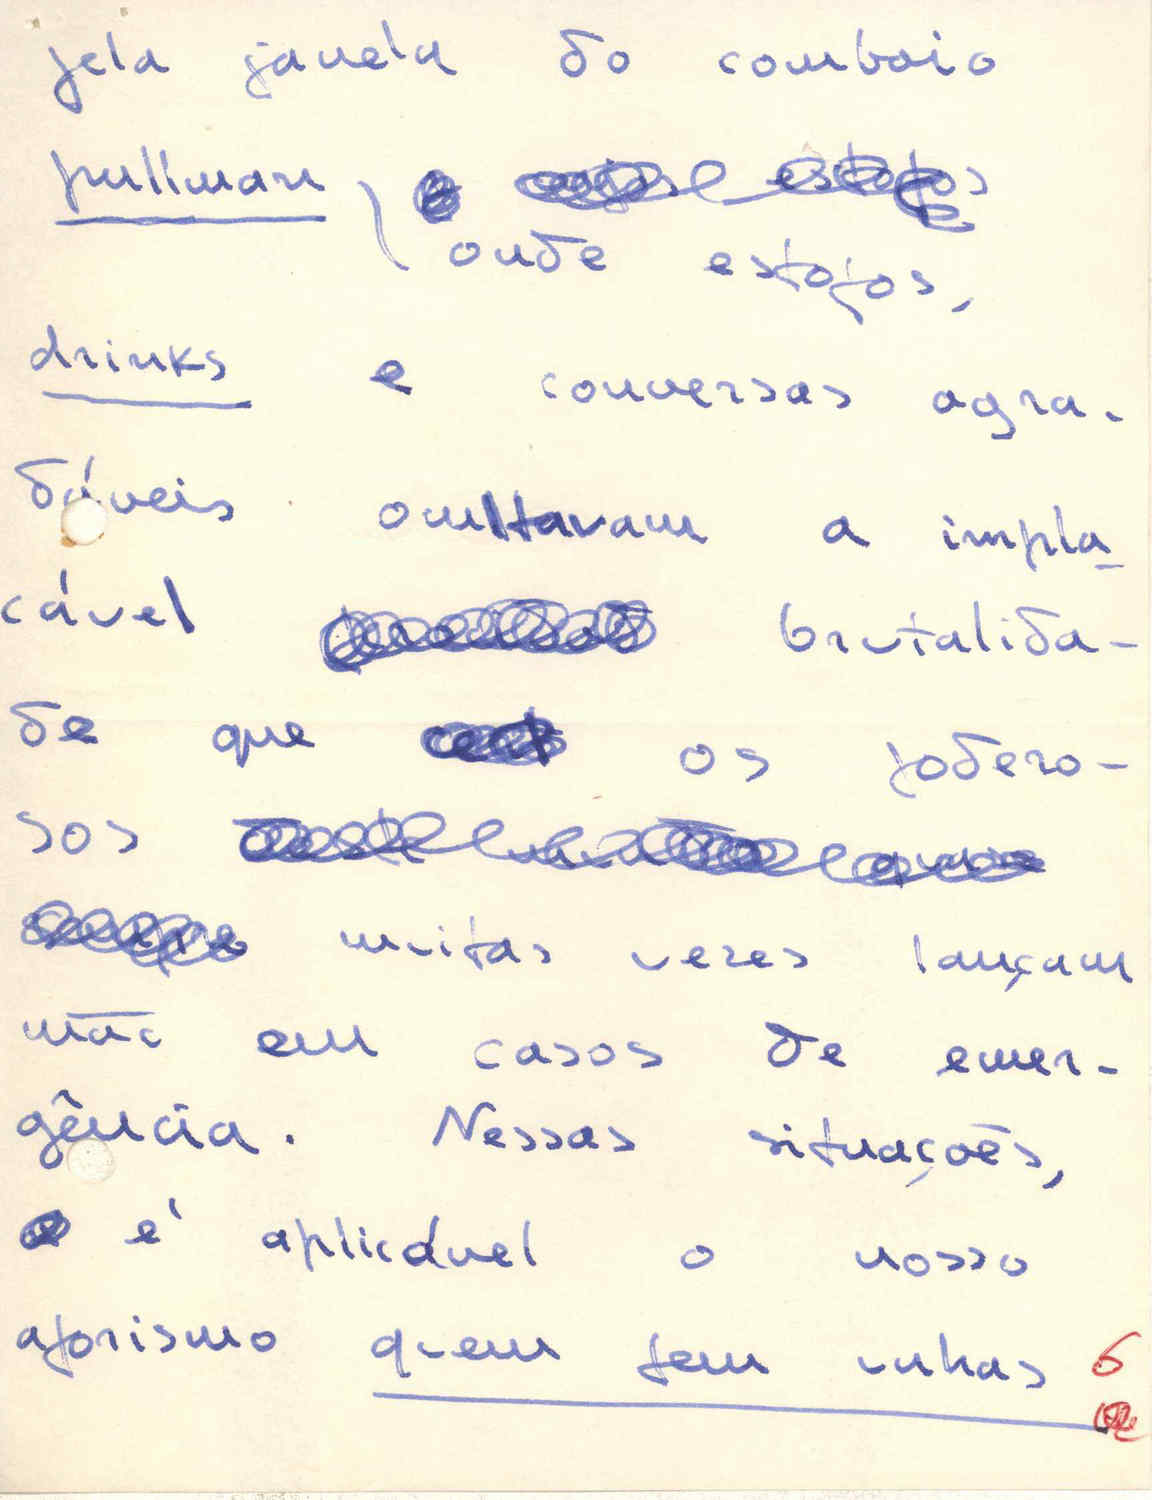 pela janela do comboio
pullman, estofos
onde estofos,
drinks e conversas agra-
dáveis ocultavam a impla-
cável brutalida-
de que os podero-
sos
muitas vezes lançam
mão em casos de emer-
gência. Nessas situações,
é aplicável o nosso
aforismo quem tem unhas 6